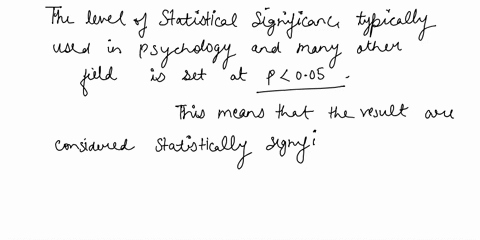 The level of Statistical Significance typically
used in psychology and many other
field is set at p < 0.05.
This means that the result are
considered statistically signifi